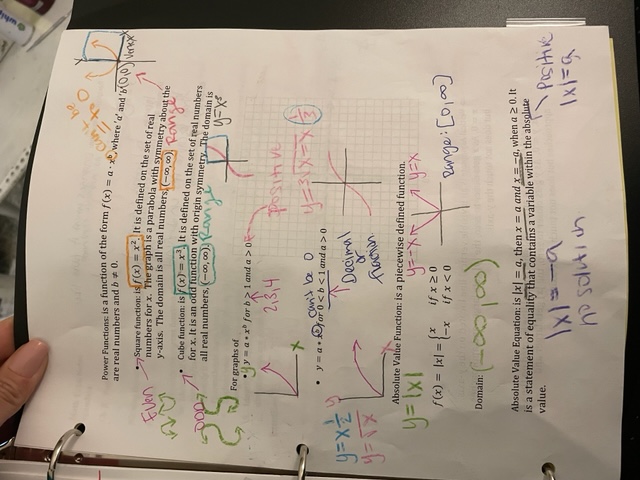 Power Functions: is a function of the form f(x) = a · xᵇ, where 'a' and 'b'
are real numbers and b ≠ 0.
can't be
= to 0
(0,0) vertex
Even
• Square function: is f(x) = x². It is defined on the set of real
numbers for x. The graph is a parabola with symmetry about the
y-axis. The domain is all real numbers, (−∞,∞) Range
ODD
• Cube function: is f(x) = x³. It is defined on the set of real numbers
for x. It is an odd function with origin symmetry. The domain is
all real numbers, (−∞,∞) Range
y=x³
For graphs of
• y = a * xᵇ for b > 1 and a > 0
2,3,4
positive
y=3√x = x^1/3
x
• y = a * xᵇ for 0 < b < 1 and a > 0
can't be 0
Decimal
or
function
y=x^1/2
y=√x
y
x
Absolute Value Function: is a piecewise defined function.
y=|x|
y=-x
y=x
f(x) = |x| = { x if x ≥ 0
−x if x < 0
range: [0,∞)
Domain: (-∞,∞)
Absolute Value Equation: is |x| = a, then x = a and x = −a, when a ≥ 0. It
is a statement of equality that contains a variable within the absolute
value.
positive
|x|=a
|x|=-a
no solution